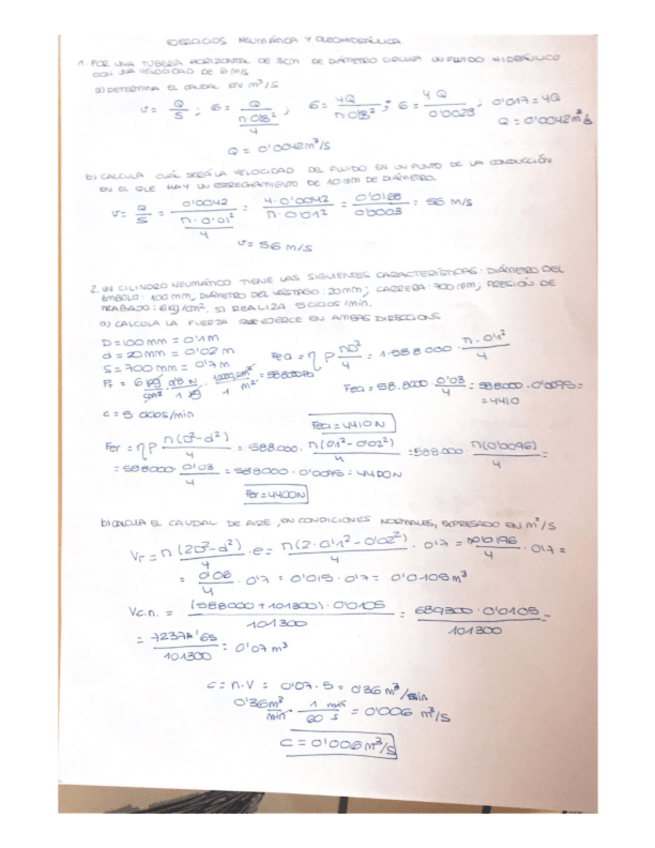 EJERCICIOS NEUMÁTICA Y OLEOHIDRÁULICA
1. POR UNA TUBERÍA HORIZONTAL DE 3cm DE DIÁMETRO CIRCULA UN FLUIDO HIDRÁULICO
CON UNA VELOCIDAD DE 6 m/s
a) DETERMINA EL CAUDAL EN m³/s
v = Q/S ; 6 = Q/(π·0'3²/4) ; 6 = 4Q/(π·0'3²) ; 6 = 4Q/0'0028 ; 0'017 = 4Q
Q = 0'0042 m³/s
Q = 0'0042 m³/s
b) CALCULA CUÁL SERÁ LA VELOCIDAD DEL FLUIDO EN UN PUNTO DE LA CONDUCCIÓN
EN EL QUE HAY UN ESTRECHAMIENTO DE 10 mm DE DIÁMETRO.
v = Q/S = 0'0042/(π·0'01²/4) = 4·0'0042/(π·0'01²) = 0'0168/0'0003 = 56 m/s
v = 56 m/s
2. UN CILINDRO NEUMÁTICO TIENE LAS SIGUIENTES CARACTERÍSTICAS: DIÁMETRO DEL
ÉMBOLO: 100 mm, DIÁMETRO DEL VÁSTAGO: 20 mm; CARRERA: 700 mm; PRESIÓN DE
TRABAJO: 6 kg/cm². SI REALIZA 5 CICLOS/min.
a) CALCULA LA FUERZA QUE EJERCE EN AMBAS DIRECCIONS
D = 100 mm = 0'1 m
d = 20 mm = 0'02 m
S = 700 mm = 0'7 m
Fea = η P πD²/4 = 1·588000 · π·0'1²/4
P = 6 kg/cm² · 9'8 N/1 kg · 10000 cm²/1 m² = 588000 Pa
Fea = 58.8000 · 0'03/4 = 588000 · 0'0075 =
= 4410
c = 5 ciclos/min
Fea = 4410 N
Fer = η P π(D²-d²)/4 = 588.000 · π(0'1²-0'02²)/4 = 588.000 · π(0'0096)/4 =
= 588000 · 0'03/4 = 588000 · 0'0075 = 4400 N
Fer = 4400 N
b) CALCULA EL CAUDAL DE AIRE, EN CONDICIONES NORMALES, EXPRESADO EN m³/s
Vr = π(2D²-d²)/4 · e = π(2·0'1²-0'02²)/4 · 0'7 = π0'0196/4 · 0'7 =
= 0'06/4 · 0'7 = 0'015 · 0'7 = 0'0105 m³
Vc.n. = (588000 + 101300) · 0'0105/101300 = 689300 · 0'0105/101300 =
= 7237'65/101300 = 0'07 m³
c = n·V = 0'07 · 5 = 0'36 m³/min
0'36 m³/min · 1 min/60 s = 0'006 m³/s
C = 0'006 m³/s